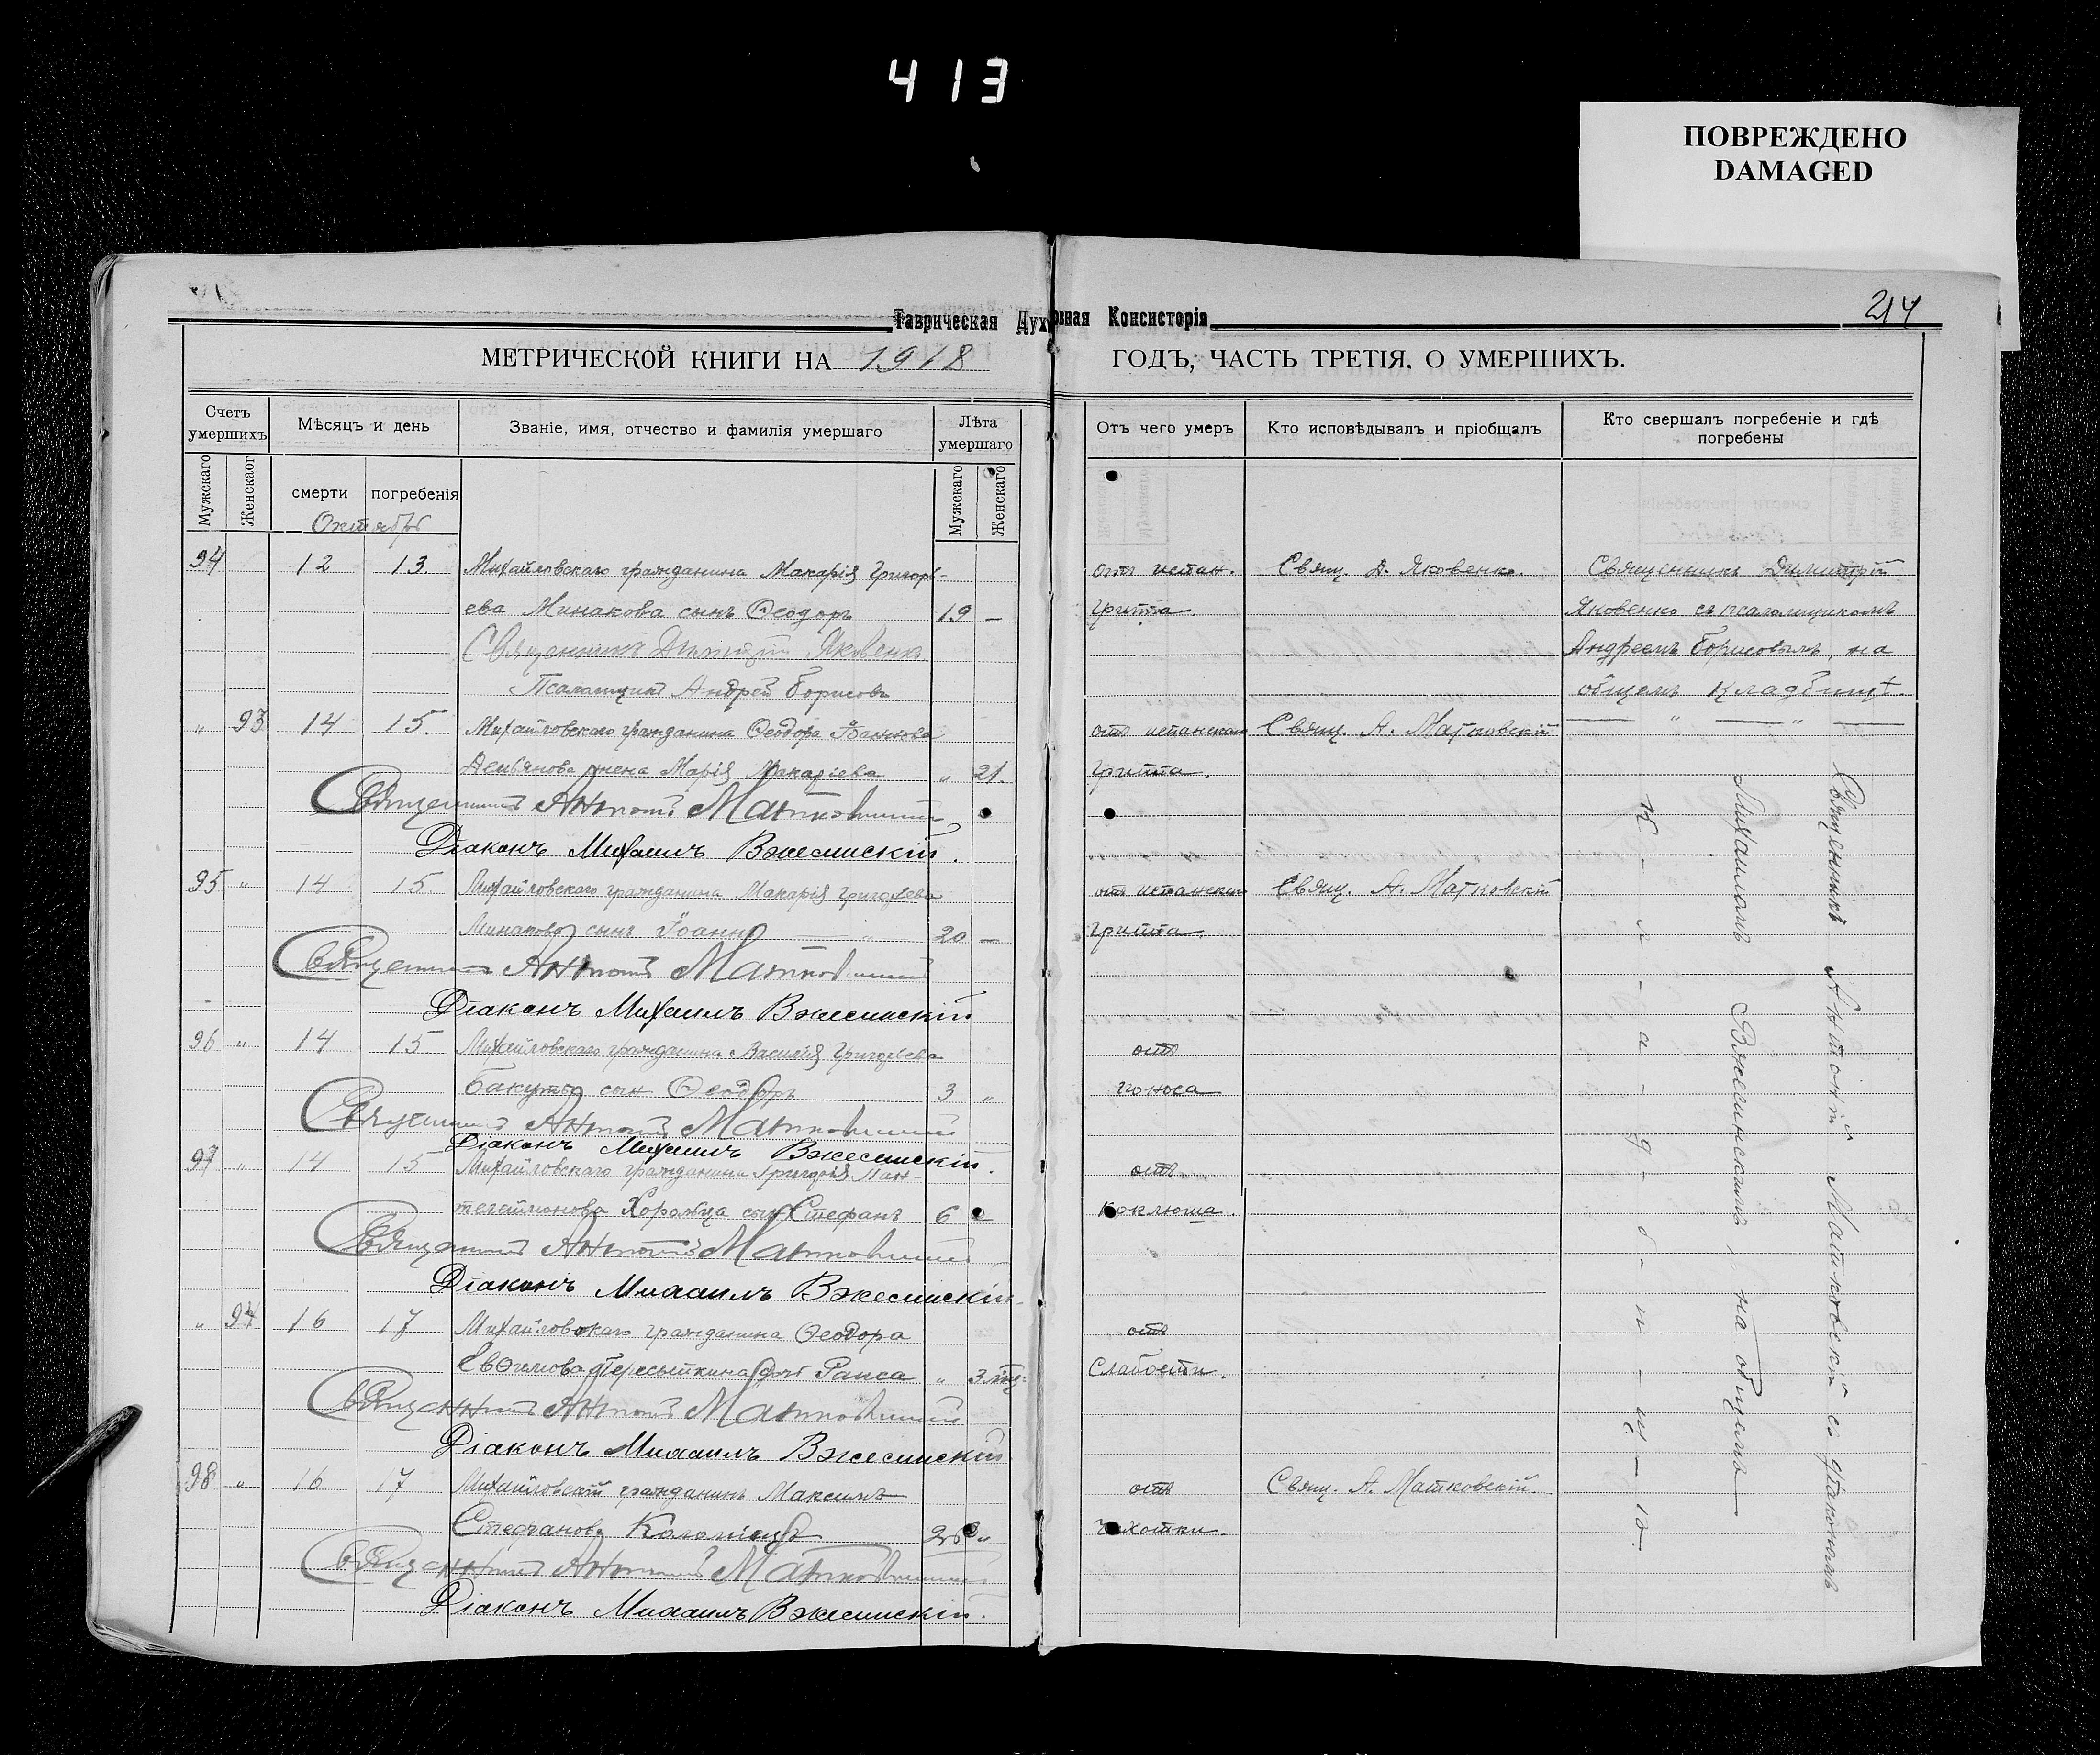 413
ПОВРЕЖДЕНО
DAMAGED
214
Таврическая Духовная Консисторія
МЕТРИЧЕСКОЙ КНИГИ НА 1918 ГОДЪ, ЧАСТЬ ТРЕТІЯ, О УМЕРШИХЪ.
Счетъ умершихъ
Мѣсяцъ и день
Званіе, имя, отчество и фамилія умершаго
Лѣта умершаго
Отъ чего умеръ
Кто исповѣдывалъ и пріобщалъ
Кто свершалъ погребеніе и гдѣ погребены
Мужскаго
Женскаог
смерти
погребенія
Мужскаго
Женскаго
Октябрь
94 12 13. Михайловскаго гражданина Макарія Григорь- отъ испан. Свящ. Д. Яковенко. Священникъ Димитрій
ева Минакова сынъ Ѳеодоръ 19 — гриппа. Яковенко съ псаломщикомъ
Священникъ Димитрій Яковенко Андреемъ Борисовымъ, на
Псаломщикъ Андрей Борисовъ общемъ кладбищѣ.
„ 93 14 15. Михайловскаго гражданина Ѳеодора Іоаннова отъ испанскаго Свящ. А. Матковскій — „ — „ —
Демьянова жена Марія Макаріева „ 21. гриппа.
Священникъ Антоній Матковскій
Діаконъ Михаилъ Вжесинскій.
95 „ 14 15 Михайловскаго гражданина Макарія Григорьева отъ испанскаго Свящ. А. Матковскій
Минакова сынъ Іоаннъ — „ 20 — гриппа.
Священникъ Антоній Матковскій
Діаконъ Михаилъ Вжесинскій
96 „ 14 15 Михайловскаго гражданина Василія Григорьева отъ
сын Ѳеодоръ 3 „ поноса
Священникъ Антоній Матковскій
Діаконъ Михаилъ Вжесинскій.
97 „ 14 15 Михайловскаго гражданина Григорія Пан- отъ
телеймонова сын Стефанъ 6 коклюша.
Священникъ Антоній Матковскій
Діаконъ Михаилъ Вжесинскій
„ 94 16 17 Михайловскаго гражданина Ѳеодора отъ
дочь Раиса „ 3 мѣс. слабости.
Священникъ Антоній Матковскій
Діаконъ Михаилъ Вжесинскій
98 „ 16 17 Михайловскій гражданинъ Максимъ отъ Свящ. А. Матковскій.
Степановъ „ Чахотки.
Священникъ Антоній Матковскій
Діаконъ Михаилъ Вжесинскій.
Священникъ Антоній Матковскій съ діакономъ
Михаиломъ Вжесинскимъ, на общемъ
к - л - а - д - б - и - щ - ѣ.